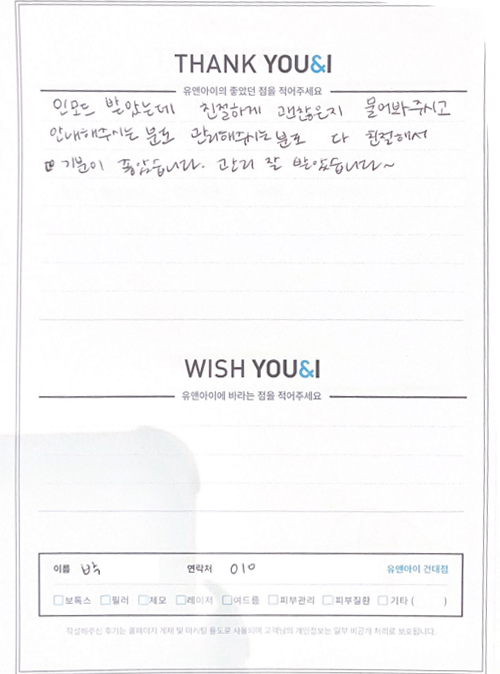 THANK YOU&I
유앤아이의 좋았던 점을 적어주세요
인모드 받았는데 친절하게 괜찮은지 물어봐주시고
안내해주시는 분도 관리해주시는 분도 다 친절해서
기분이 좋았습니다. 관리 잘 받았습니다~
WISH YOU&I
유앤아이에 바라는 점을 적어주세요
이름 박 연락처 010 유앤아이 건대점
보톡스 필러 제모 레이저 여드름 피부관리 피부질환 기타 ( )
작성해주신 후기는 홈페이지 게재 및 마케팅 용도로 사용되며 고객님의 개인정보는 일부 비공개 처리로 보호됩니다.